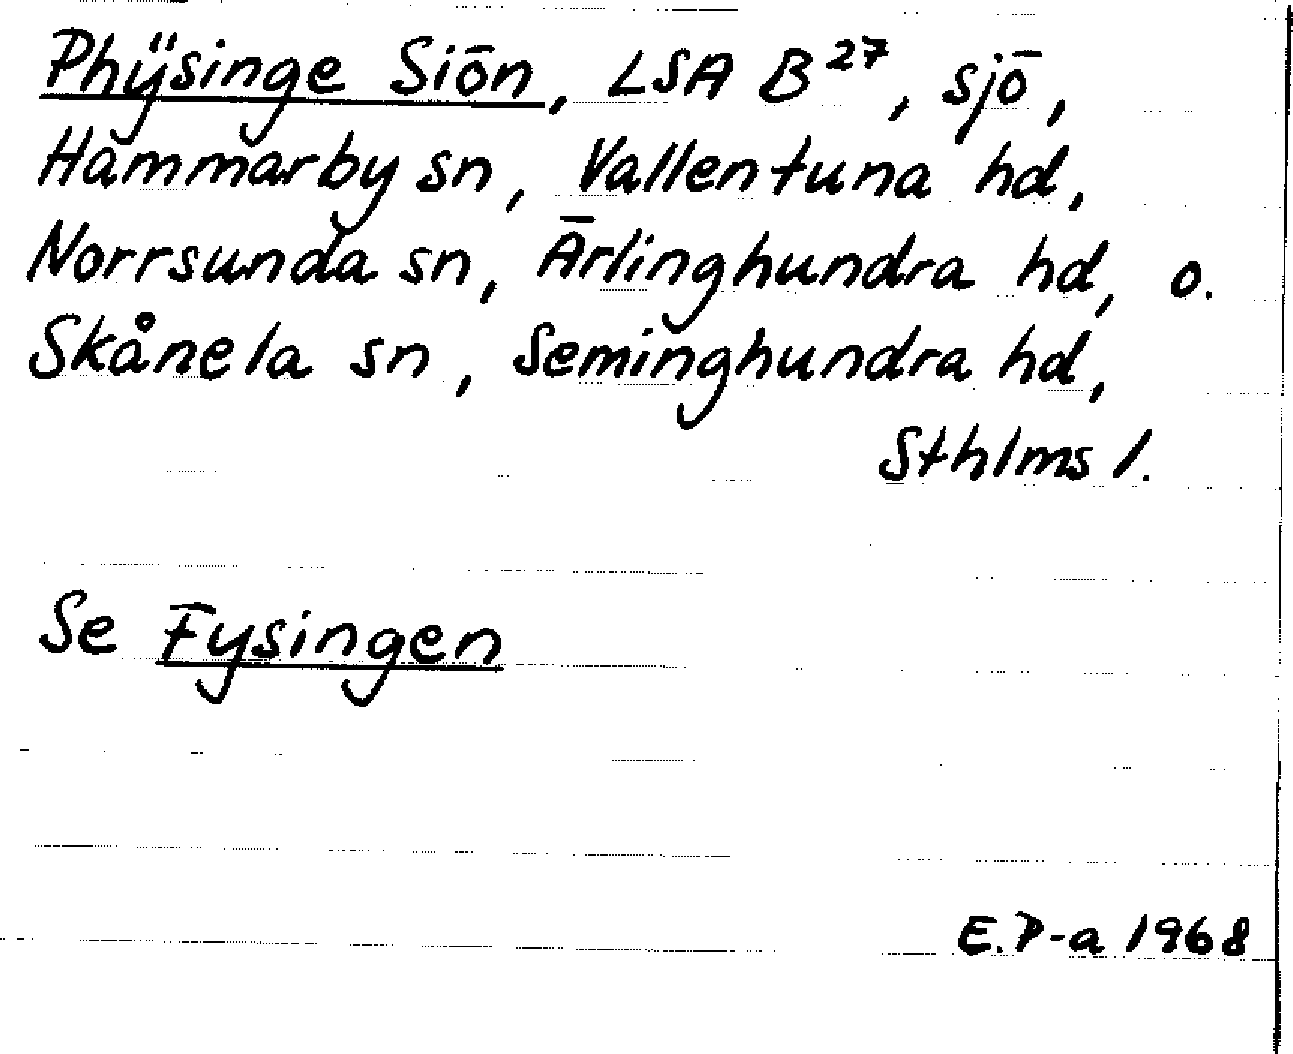 Phÿsinge Siön, LSA B²⁷, sjö,
Hammarby sn, Vallentuna hd,
Norrsunda sn, Ärlinghundra hd, o.
Skånela sn, Seminghundra hd,
Sthlms l.
Se Fysingen
E.P-a 1968